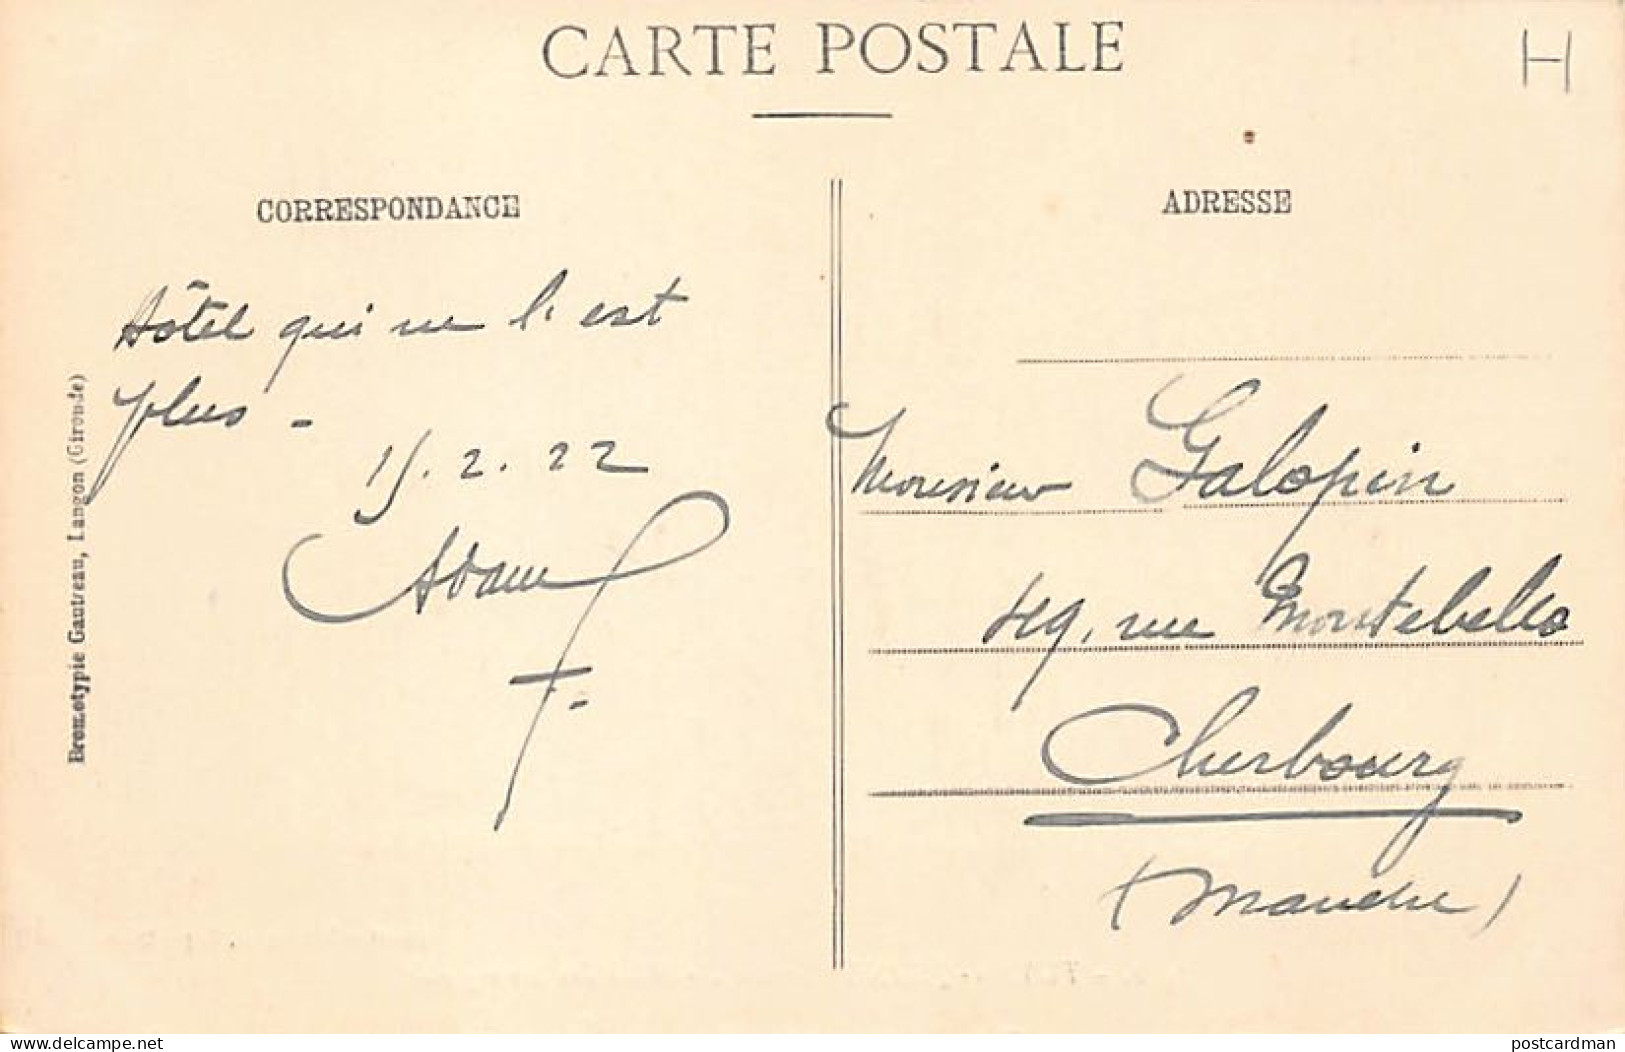 CARTE POSTALE
H
CORRESPONDANCE
ADRESSE
Hôtel qui ne l'est
plus -
15.2.22
Adam
Monsieur Galopin
rue Montebello
Cherbourg
(Manche)
Bromotypie Gautreau, Langon (Gironde)
www.delcampe.net
postcardman